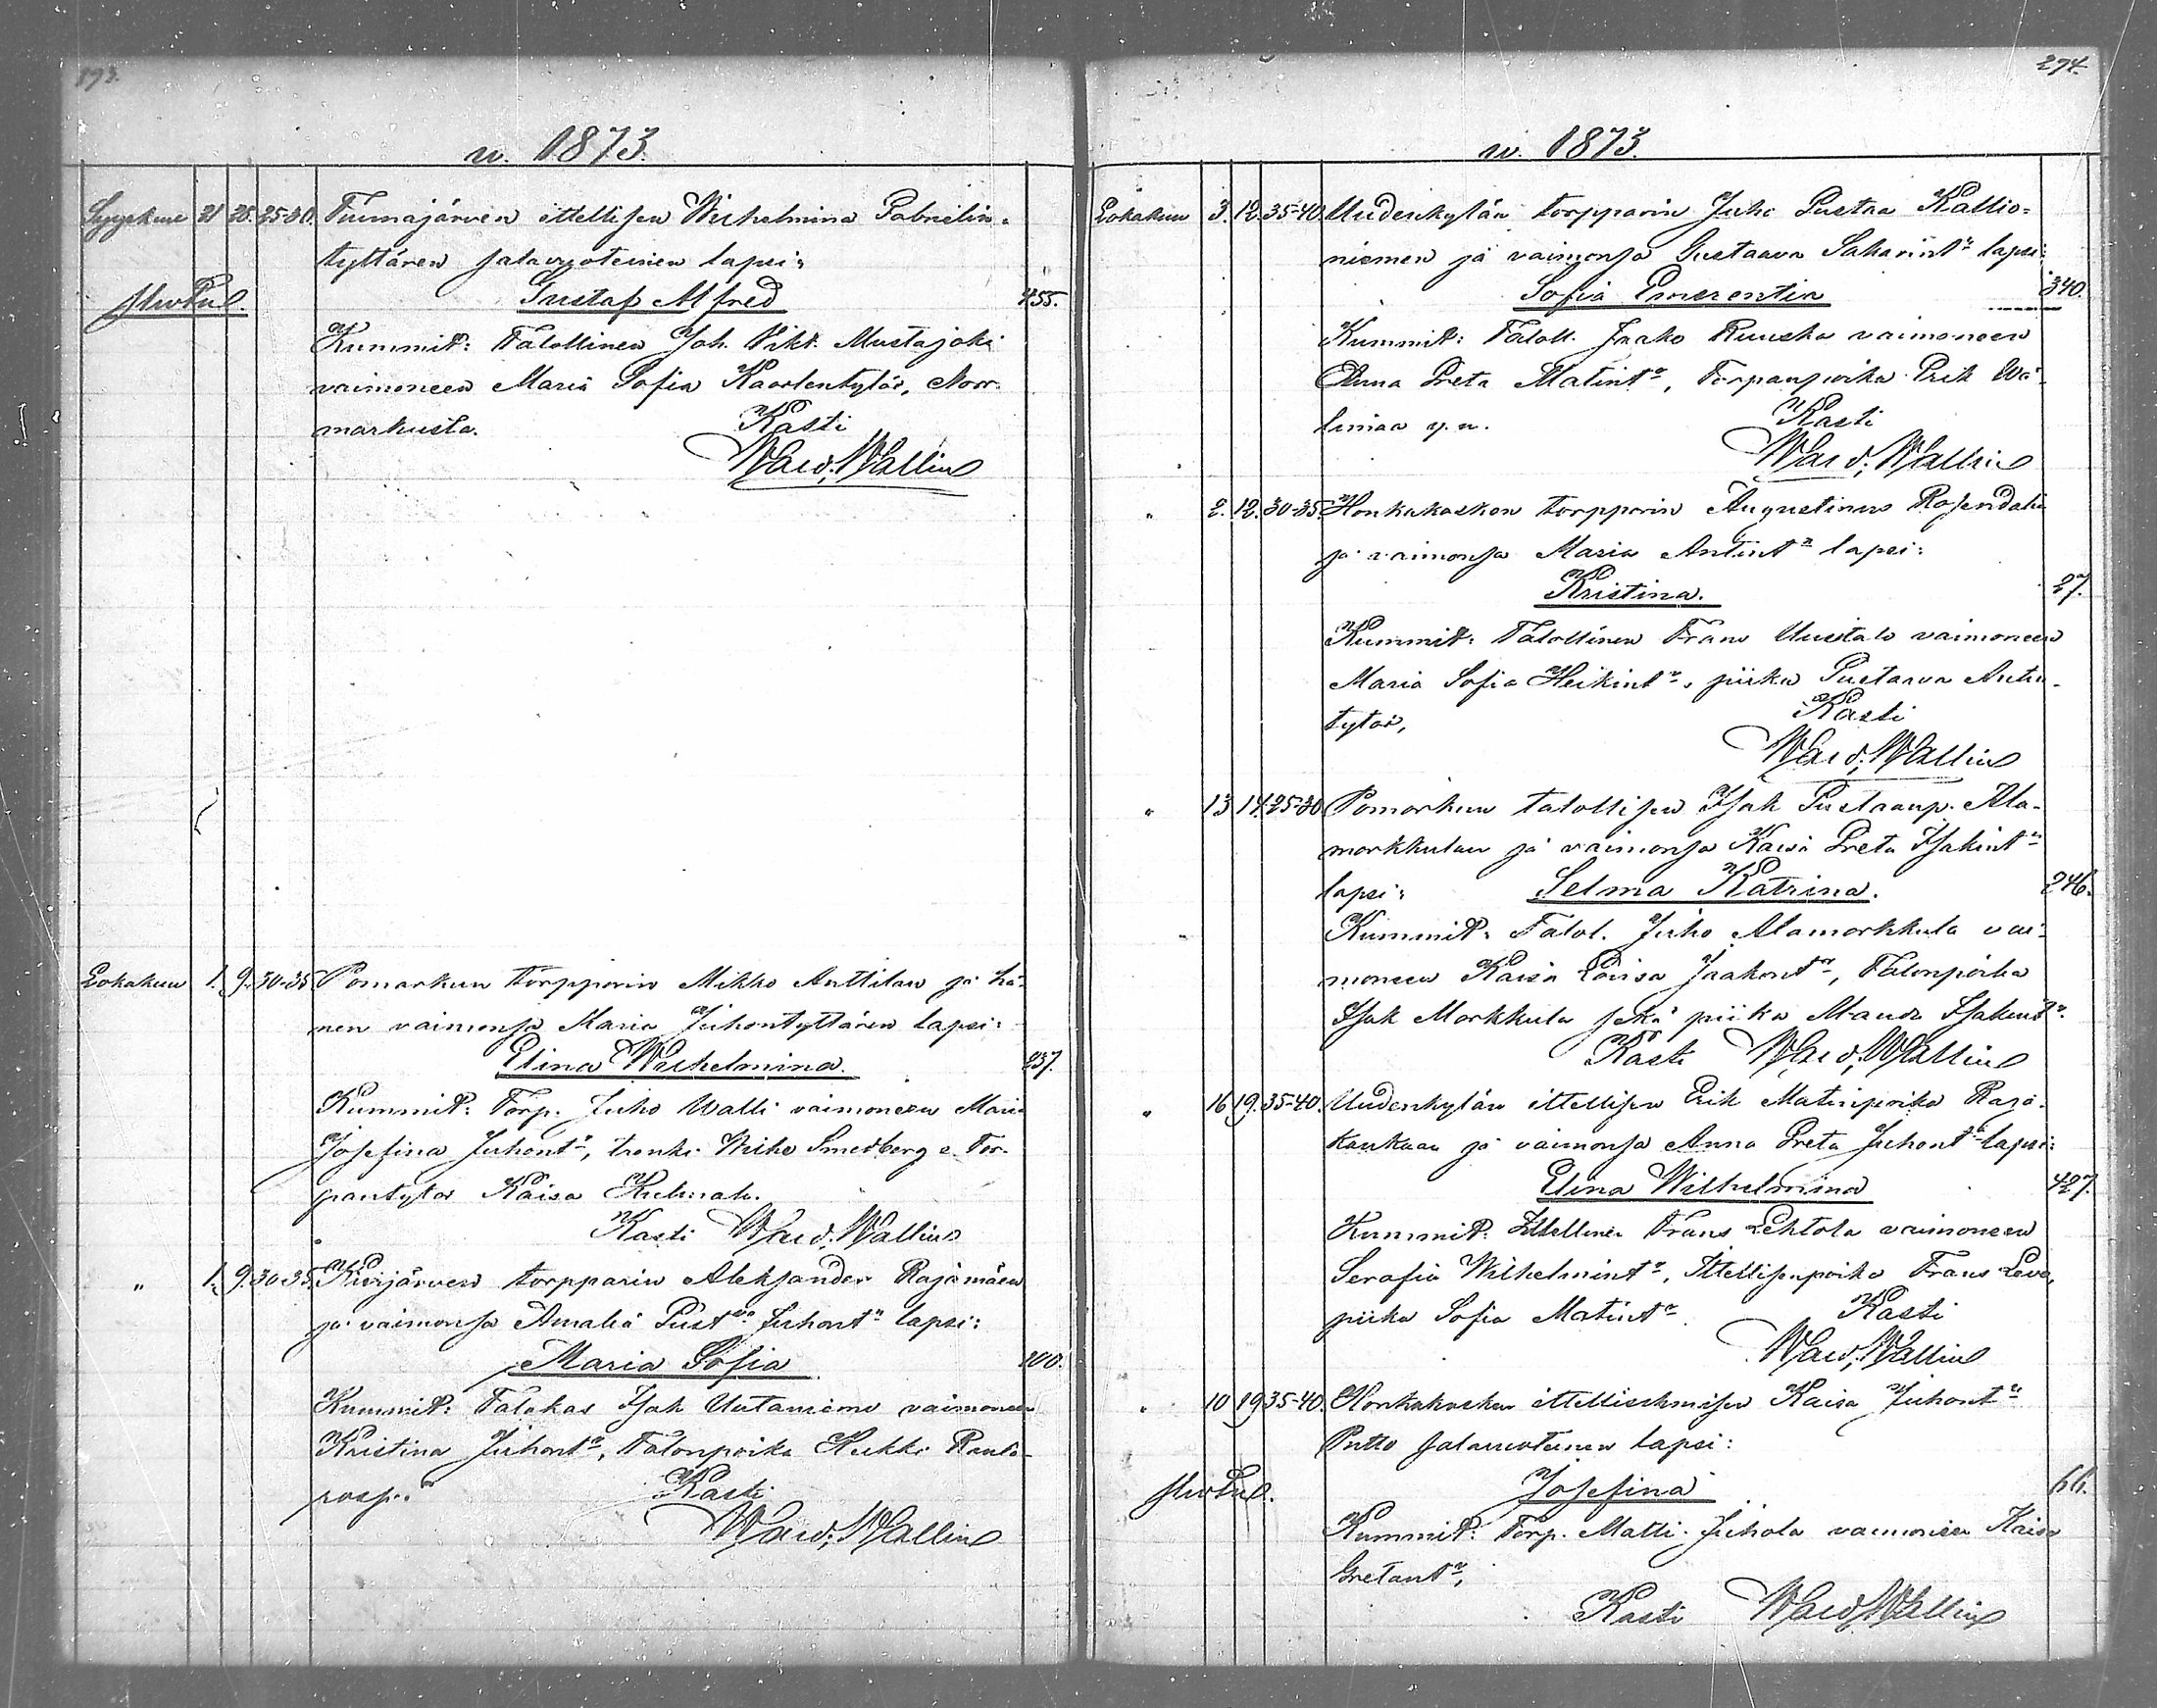 273.
w. 1873.
Syyskuu 21 28. 25-30. Tuunajärven ittellisen Wilhelmina Gabrielin-
tyttären salavuoteinen lapsi:
Gustaf Alfred 455.
Kummit: Talollinen Joh. Vikt. Mustajoki
vaimoneen Maria Sofia Kaarlentytär, Norr-
markusta. Kasti
Wald. Wallin
Lokakuu 1. 9. 30-35 Pomarkun torpparin Mikko Anttilan ja hä-
nen vaimonsa Maria Juhontyttären lapsi:
Elina Wilhelmina. 237.
Kummit: Torp. Juho Walli vaimoneen Maria
Josefina Juhont:r, trenki Wilho Smedberg e. Tor-
pantytär Kaisa
Kasti Wald. Wallin
" 1. 9. 30-35. Kivijärven torpparin Aleksander Rajamäen
ja vaimonsa Amalia Gust:va Juhont:n lapsi:
Maria Sofia 200.
Kummit: Talokas Isak Uutaniemi vaimoneen
Kristina Juhont:r, Talonpoika Heikki
Kasti
Wald. Wallin
274.
w. 1873.
Lokakuu 3. 12. 35-40. Uudenkylän torpparin Juho Gustaa Kallio-
niemen ja vaimonsa Gustaava Sakarint:n lapsi:
Sofia Emerentia 340.
Kummit: Taloll. Jaako Ruuska vaimoneen
Anna Greta Matint:r, Torpanpoika Erik Wä-
limaa y.n. Kasti
Wald. Wallin
" 2. 12. 30-35. Honkakosken torpparin Augustinus Rosendalin
ja vaimonsa Maria Antint:n lapsi:
Kristina. 27.
Kummit: Talollinen Frans Uusitalo vaimoneen
Maria Sofia Heikint:r, piika Gustaava Antin-
tytär, Kasti
Wald. Wallin
" 13 14. 25-30 Pomarkun talollisen Isak Gustaanp. Ala-
morkkulan ja vaimonsa Kaisa Greta Isakint:n
lapsi: Selma Katrina. 246.
Kummit: Talol. Juho Alamorkkula vai-
moneen Kaisa Lovisa Jaakont:r, Talonpoika
Isak Morkkula sekä piika Maria Isakint:r.
Kasti Wald. Wallin
" 16 19. 35-40. Uudenkylän ittellisen Erik Matinpoika Raja-
kankaan ja vaimonsa Anna Greta Juhont:n lapsi:
Elina Wilhelmina 427.
Kummit: Ittellinen Frans Lehtola vaimoneen
Serafia Wilhelmint:r, Ittellisenpoika Frans
piika Sofia Matint:r. Kasti
Wald. Wallin
" 10 19 35-40. Honkakosken ittellisen Kaisa Juhont:n
Putto salavuoteinen lapsi:
Josefina 66.
Kummit: Torp. Matti Juhola vaimoneen Kaisa
Gretant:r,
Kasti Wald. Wallin